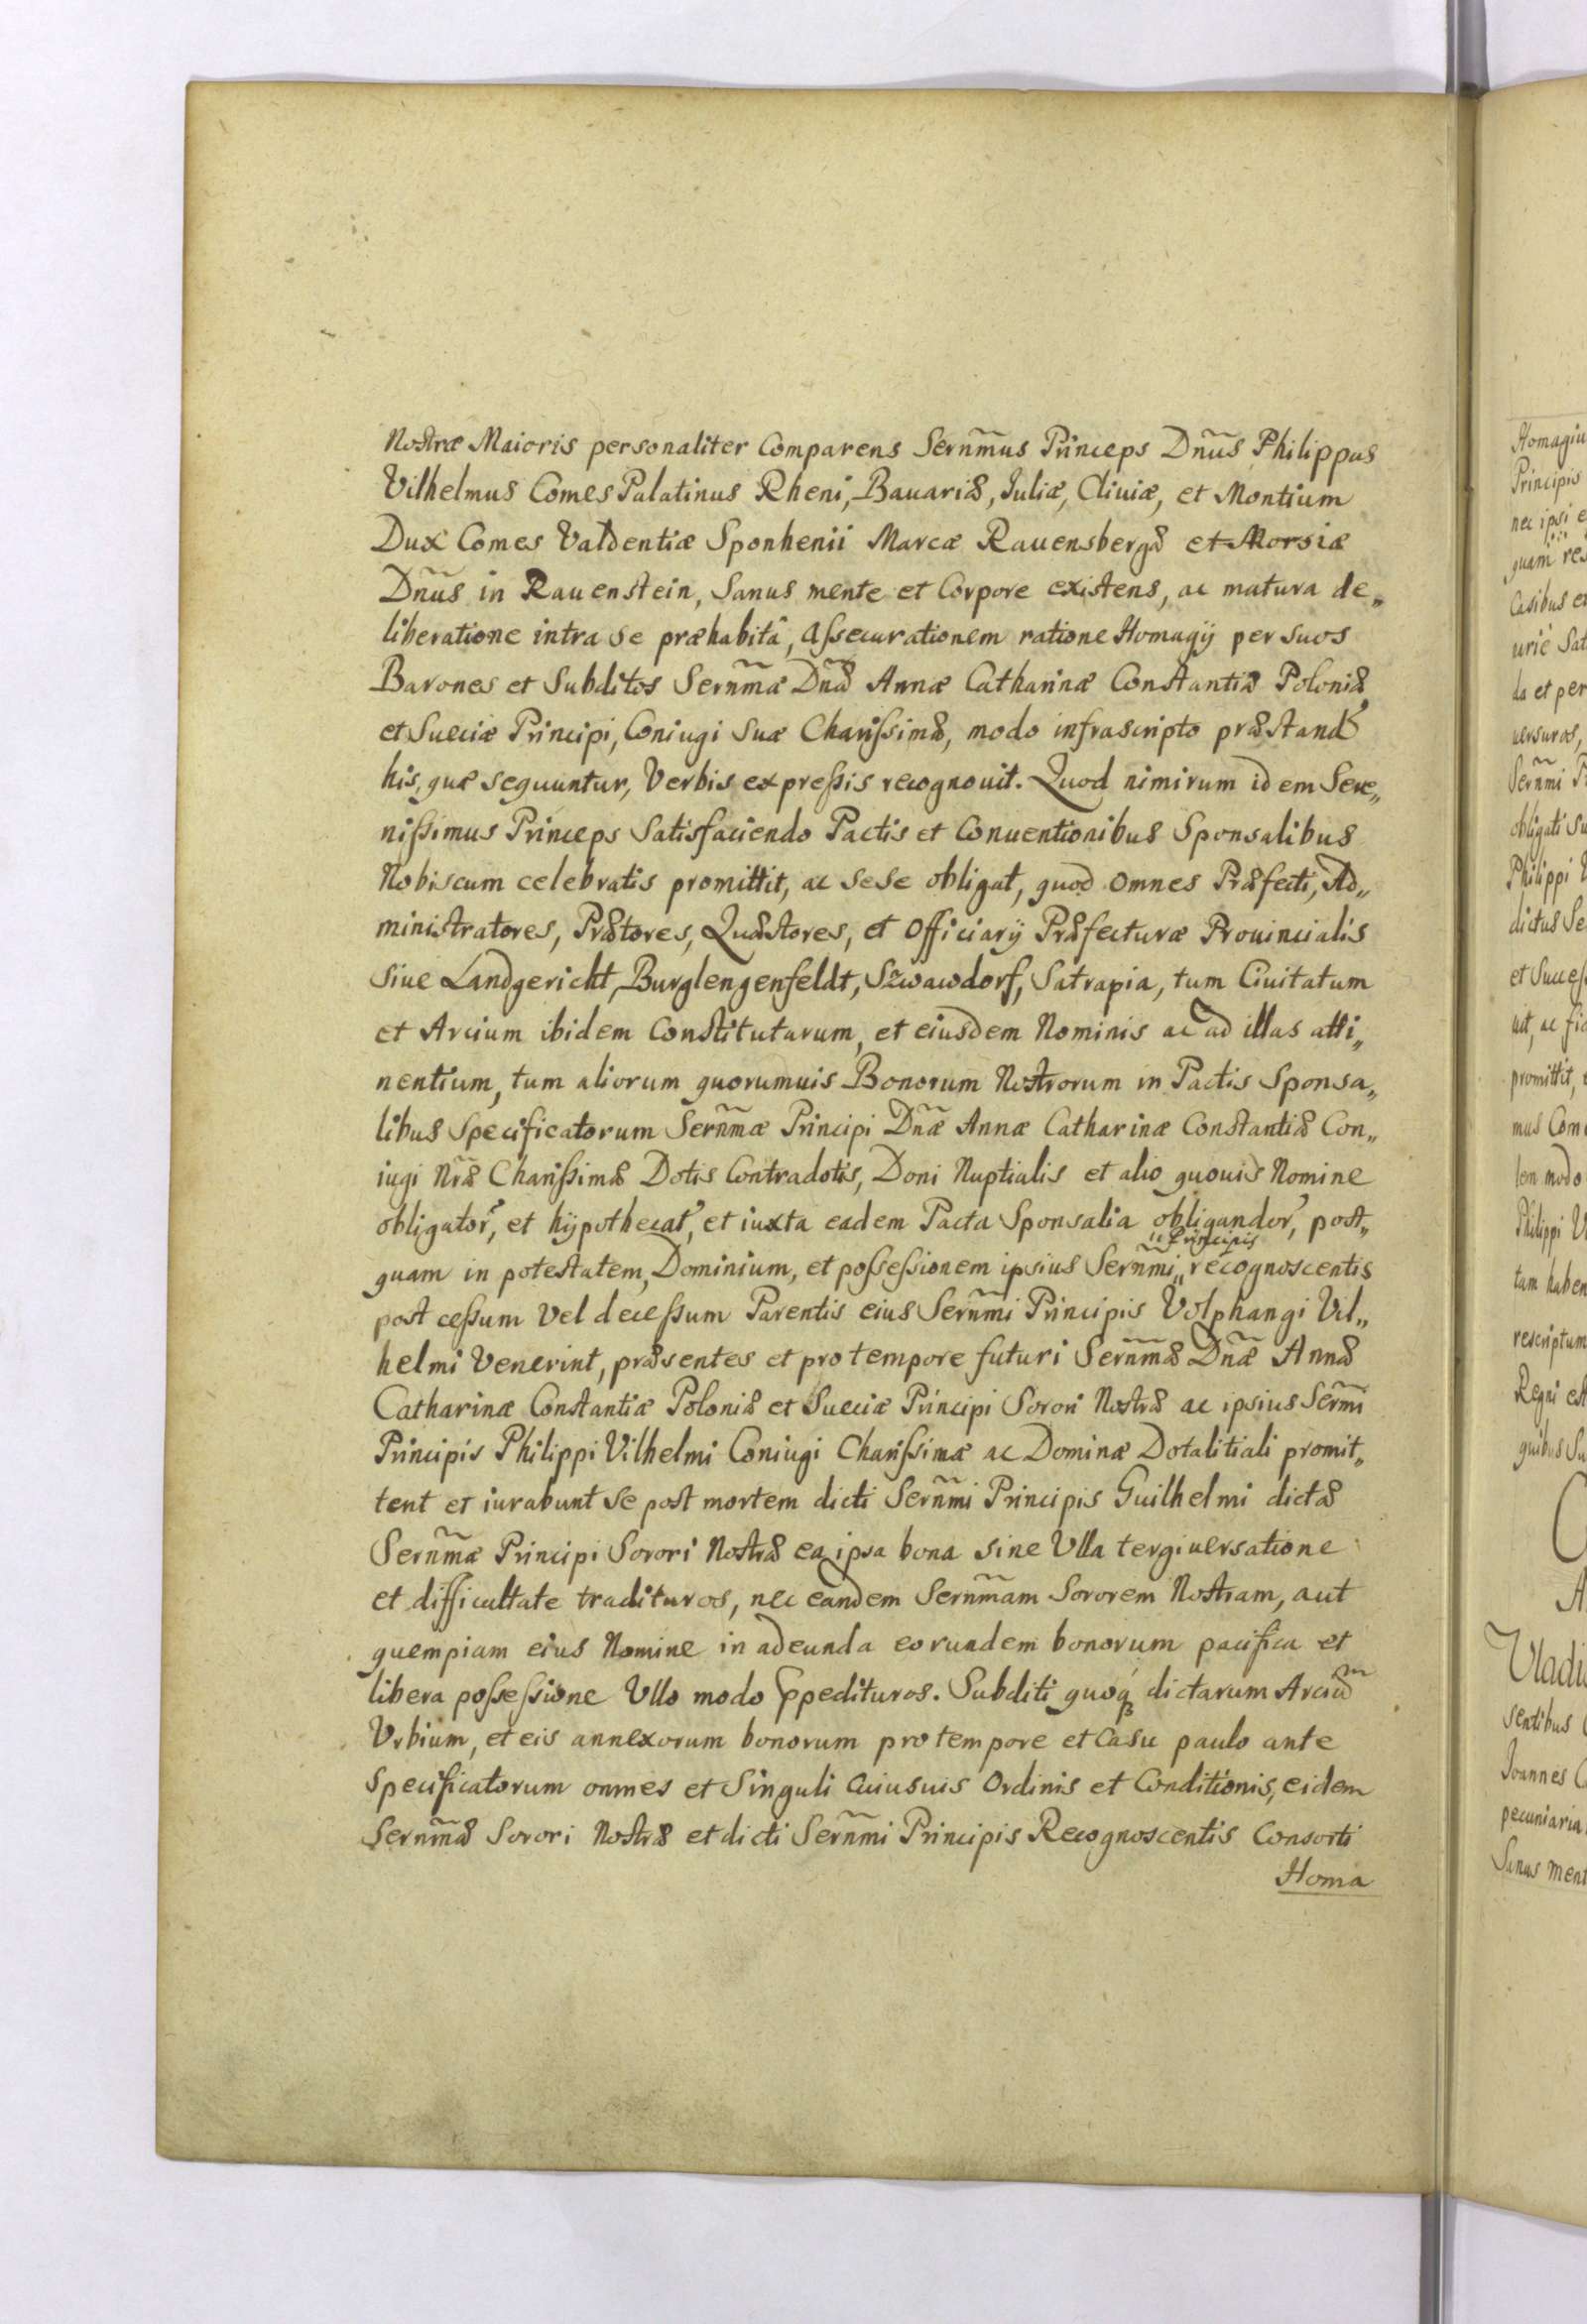 Nostræ Maioris personaliter Comparens Sernm̃us Princeps Dnũs Philippus
Vilhelmus Comes Palatinus Rheni, Bauariæ, Juliæ, Cliuiæ, et Montium
Dux Comes Valdentiæ Sponhenii Marcæ Rauensbergæ et Morsiæ
Dnũs in Rauenstein, Sanus mente et Corpore existens, ac matura de„
liberatione intra se præhabitâ, Assecurationem ratione Homagÿ per suos
Barones et Subditos Sernm̃æ Dnæ̃ Annæ Catharinæ Constantiæ Poloniæ
et Sueciæ Principi, Coniugi Suæ Charissimæ, modo infrascripto præstand'
his, quæ sequuntur, Verbis expressis recognouit. Quod nimirum idem Sere„
nissimus Princeps Satisfaciendo Pactis et Conuentionibus Sponsalibus
Nobiscum celebratis promittit, ac sese obligat, quod omnes Præfecti, Ad„
ministratores, Prætores, Quæstores, et Officiarÿ Præfecturæ Prouincialis
siue Landgericht, Burglengenfeldt, Szwawdorf, Satrapia, tum Ciuitatum
et Arcium ibidem Constitutarum, et eiusdem Nominis ac ad illas atti„
nentium, tum aliorum quorumuis Bonorum Nostrorum in Pactis Sponsa„
libus Specificatorum Sernm̃æ Principi Dnæ̃ Annæ Catharinæ Constantiæ Con„
iugi Nræ̃ Charissimæ Dotis Contradotis, Doni Nuptialis et alio quouis Nomine
obligator', et hÿpothecat', et iuxta eadem Pacta Sponsalia obligandor', post„
quam in potestatem, Dominium, et possessionem ipsius Sernm̃i „ recognoscentis
„ Principis
post cessum vel decessum Parentis eius Sernm̃i Principis Volphangi Vil„
helmi Venerint, præsentes et pro tempore futuri Sernm̃æ Dnæ̃ Annæ
Catharinæ Constantiæ Poloniæ et Sueciæ Principi Sorori Nostræ ac ipsius Serm̃i
Principis Philippi Vilhelmi Coniugi Charissimæ ac Dominæ Dotalitiali promit„
tent et iurabunt se post mortem dicti Sernm̃i Principis Guilhelmi dictæ
Sernm̃æ Principi Sorori Nostræ ea ipsa bona sine Vlla tergiuersatione
et difficultate tradituros, nec eandem Sernm̃am Sororem Nostram, aut
quempiam eius Nomine in adeunda eorundem bonorum pacifica et
libera possessione Vllo modo ꝓpedituros. Subditi quoqꝫ dictarum Arciũ
Vrbium, et eis annexorum bonorum pro tempore et Casu paulo ante
specificatorum omnes et Singuli cuiusuis Ordinis et Conditionis, eidem
Sernm̃æ Sorori Nostræ et dicti Sernm̃i Principis Recognoscentis Consorti
Homa